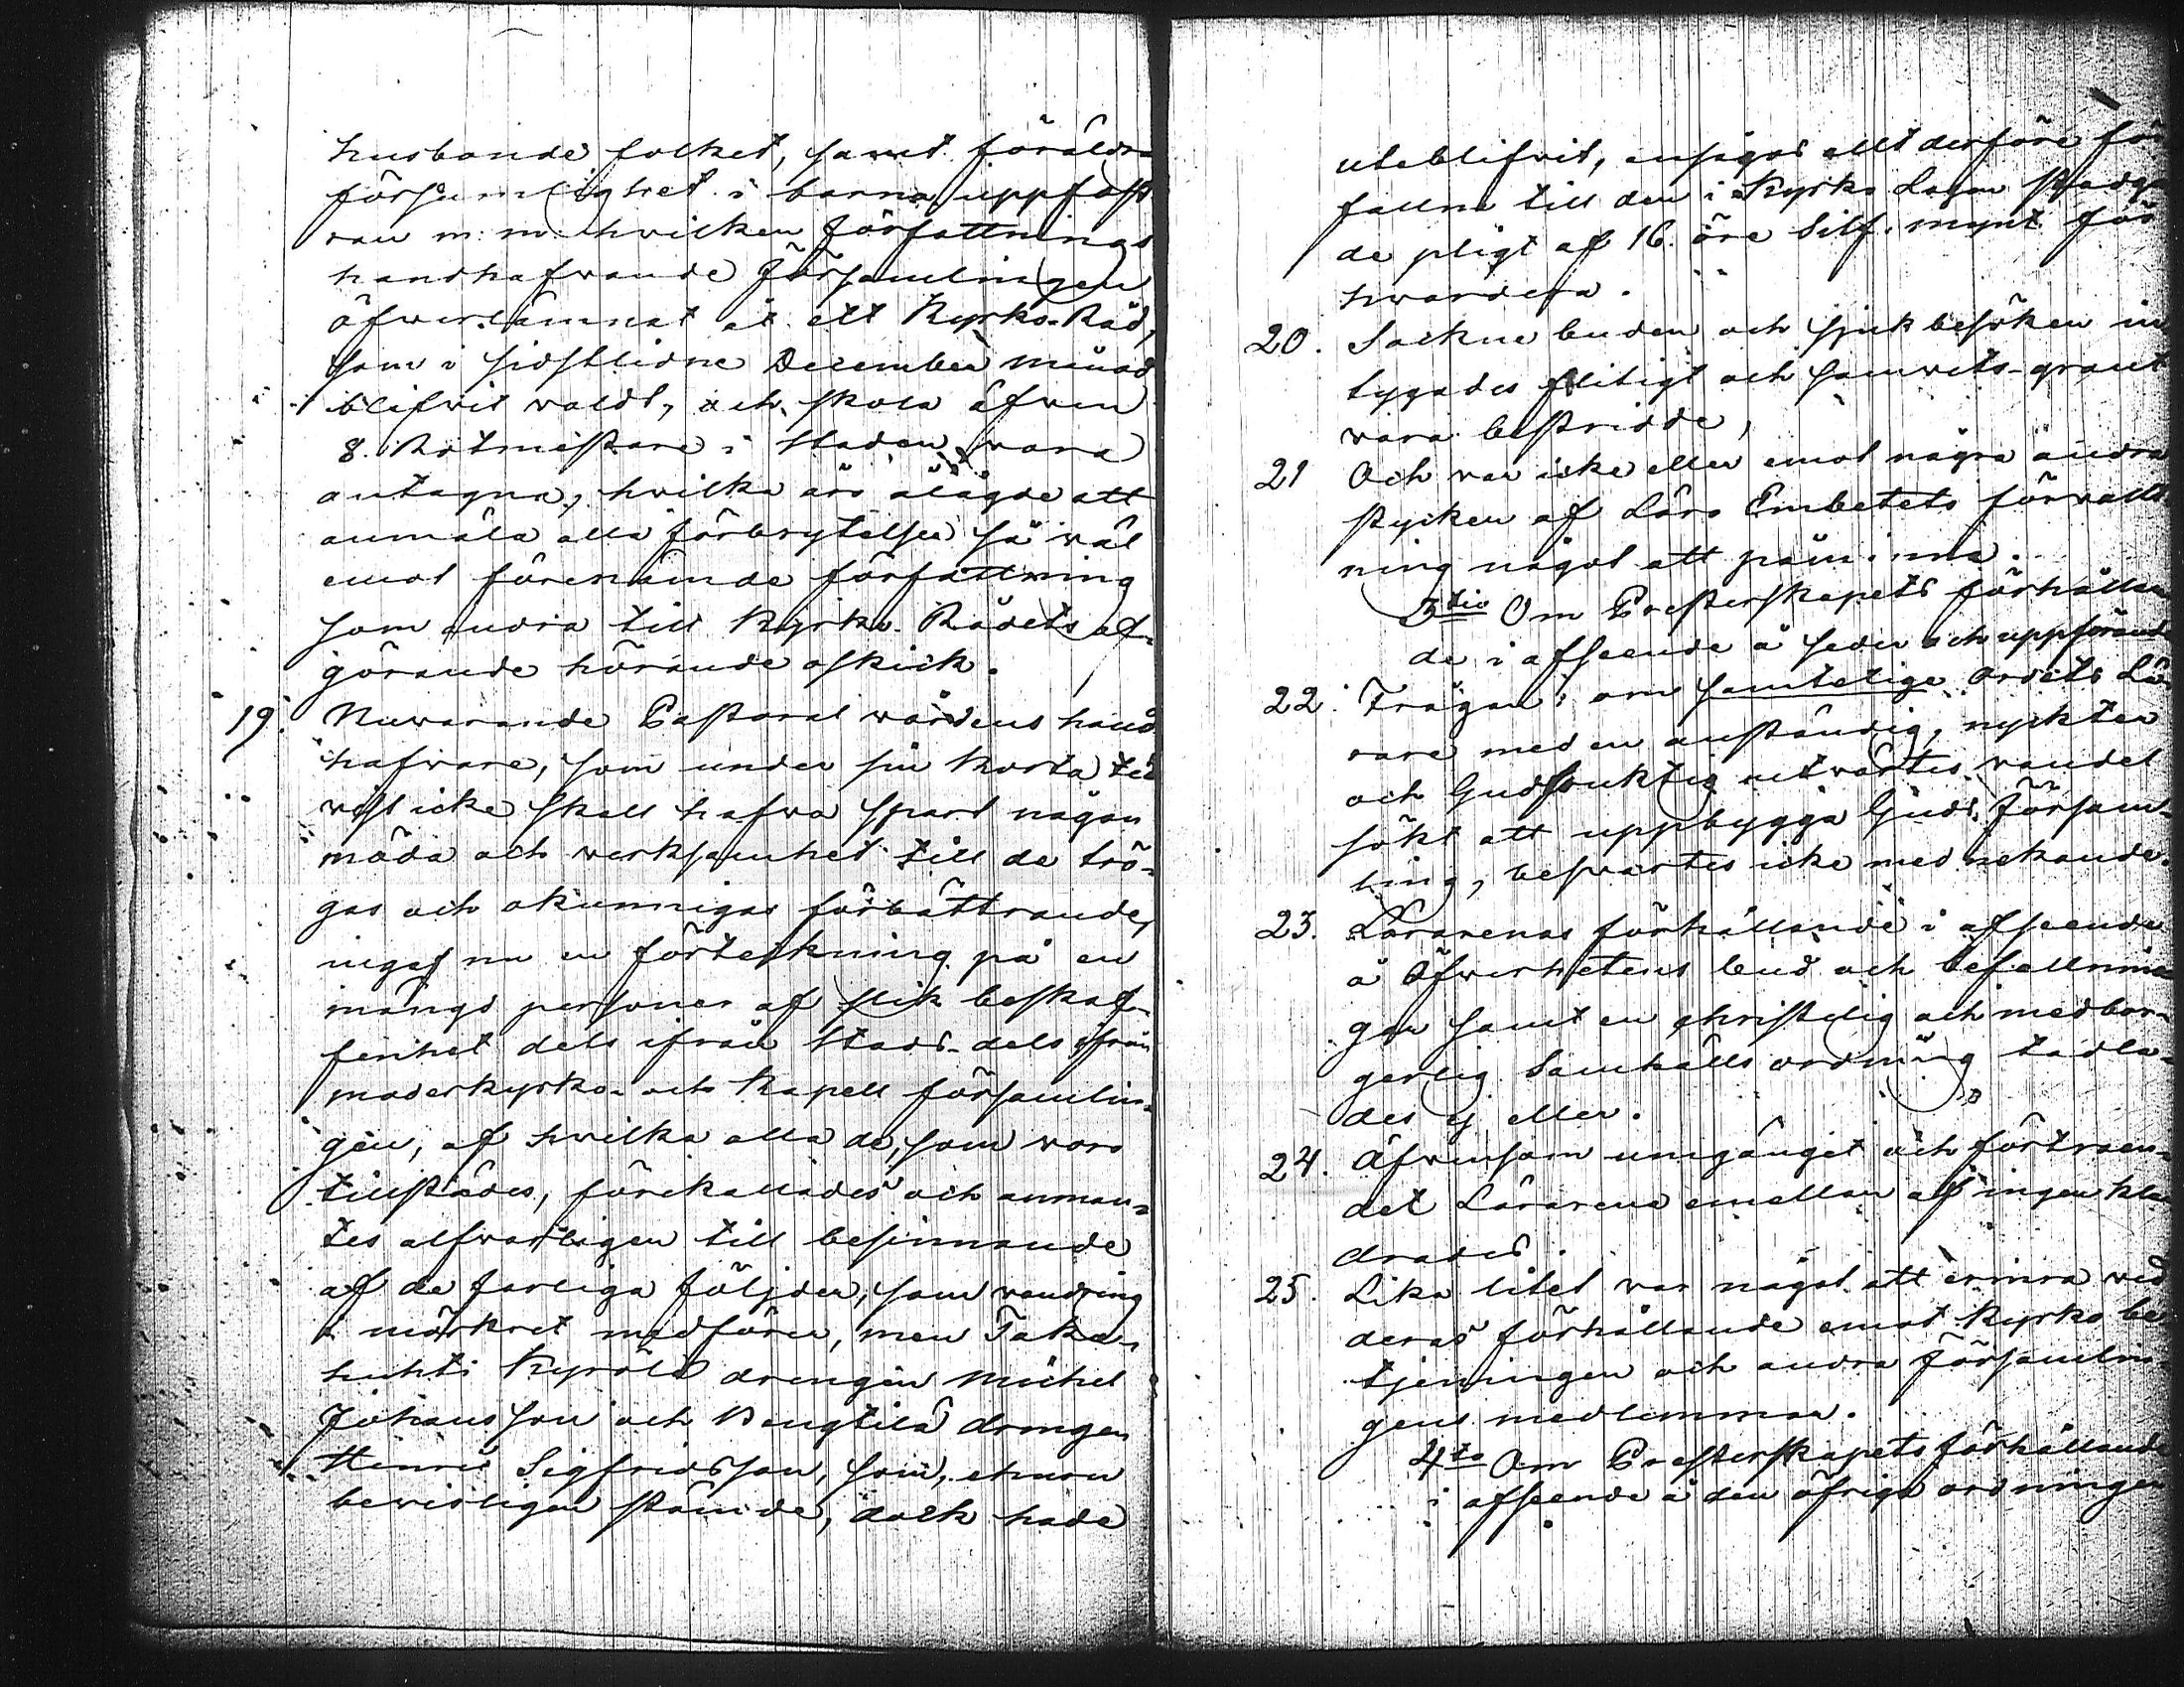 husbonde folket, samt föräldra
försumlighet i barna uppfost
ran m: m: hvilken författnings
handhafwande Församlingen
öfwerlämnat åt ett Kyrko-Råd,
som i sidstlidne December månad
blifwit waldt, och skola äfwen
8. Rotmästare i Staden wara
antagna, hvilka äro ålagde att
anmäla alla förbrytelser så wäl
emot förenämde författning
som andra till Kyrko-Rådets af-
görande hörande oskick.
19. Nuwarande Pastoral wårdens hand
hafware, som under sin korta tid
wist icke skall hafwa spart någon
möda och werksamhet till de trö-
gas och okunnigas förbättrande,
ingaf nu en förteckning på en
mängd personer af slik beskaf-
fenhet dels ifrån Stads- dels ifrån
moderkyrko- och Kapell församlin-
gen, af hvilka alla de, som woro
tillstädes, förekallades och anman-
tes alfwarligen till besinnande
af de farliga följder, som vandring
i mörkret medförer, men Taka-
huhti Kyrölä drengen Michel
Johansson och Bengtilä drengen
Henric Sigfridsson, som, ehuru
bewisligen stämde, dock hade
uteblifwit, ansågos allt derföre för
fallne till den i Kyrko Lagen stadga
de pligt af 16. öre Silf: mynt för
hwardera.
20. Sockne buden och sjuk besöken in
tygades flitigt och samwets-grant
wara bestridde,
21 Och war icke eller emot några andra
stycken af Läro Embetets förwalt
ning något att påminna.
3tio Om Presterskapets förhållan
de i afseende å seder och uppförande
22. Frågan: om samtelige Ordets Lä-
rare med en anständig, nyckter
och Gudfruktig utwärtes vandel
sökt att uppbygga Guds Försam-
ling, beswartes icke med nekande.
23. Lärarenas förhållande i afseende
å Öfwerhetens bud och befallnin
gar samt en christelig och medbor-
gerlig Samhälls ordning tadla-
des ej eller.
24. Äfwensom umgänget och förtroen-
det Lärarena emellan af ingen kla
drades.
25. Lika litet war något att erinra wid
deras förhållande emot Kyrko be
tjeningen och andra församlin
gens medlemmar.
4to Om Presterskapets förhållande
i afseende å den öfriga ordningen